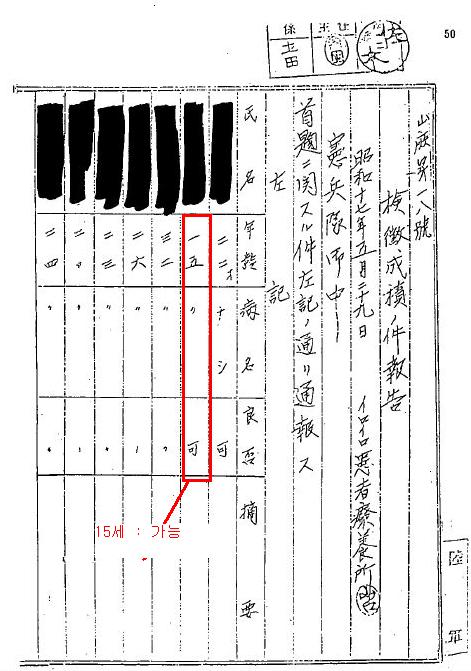 50
係
主任
第一八號
檢黴成績ノ件報告
昭和十七年五月二十九日
イロイロ患者療養所
憲兵隊御中
首題ニ関スル件左記ノ通リ通報ス
左記
氏名 年齡 病名 良否 摘要
二二才 ナシ 可
一五 〃 可
〃 〃
二六 〃 〃
二三 〃 〃
〃 〃
二四 〃 〃
15세 : 가능
陸軍